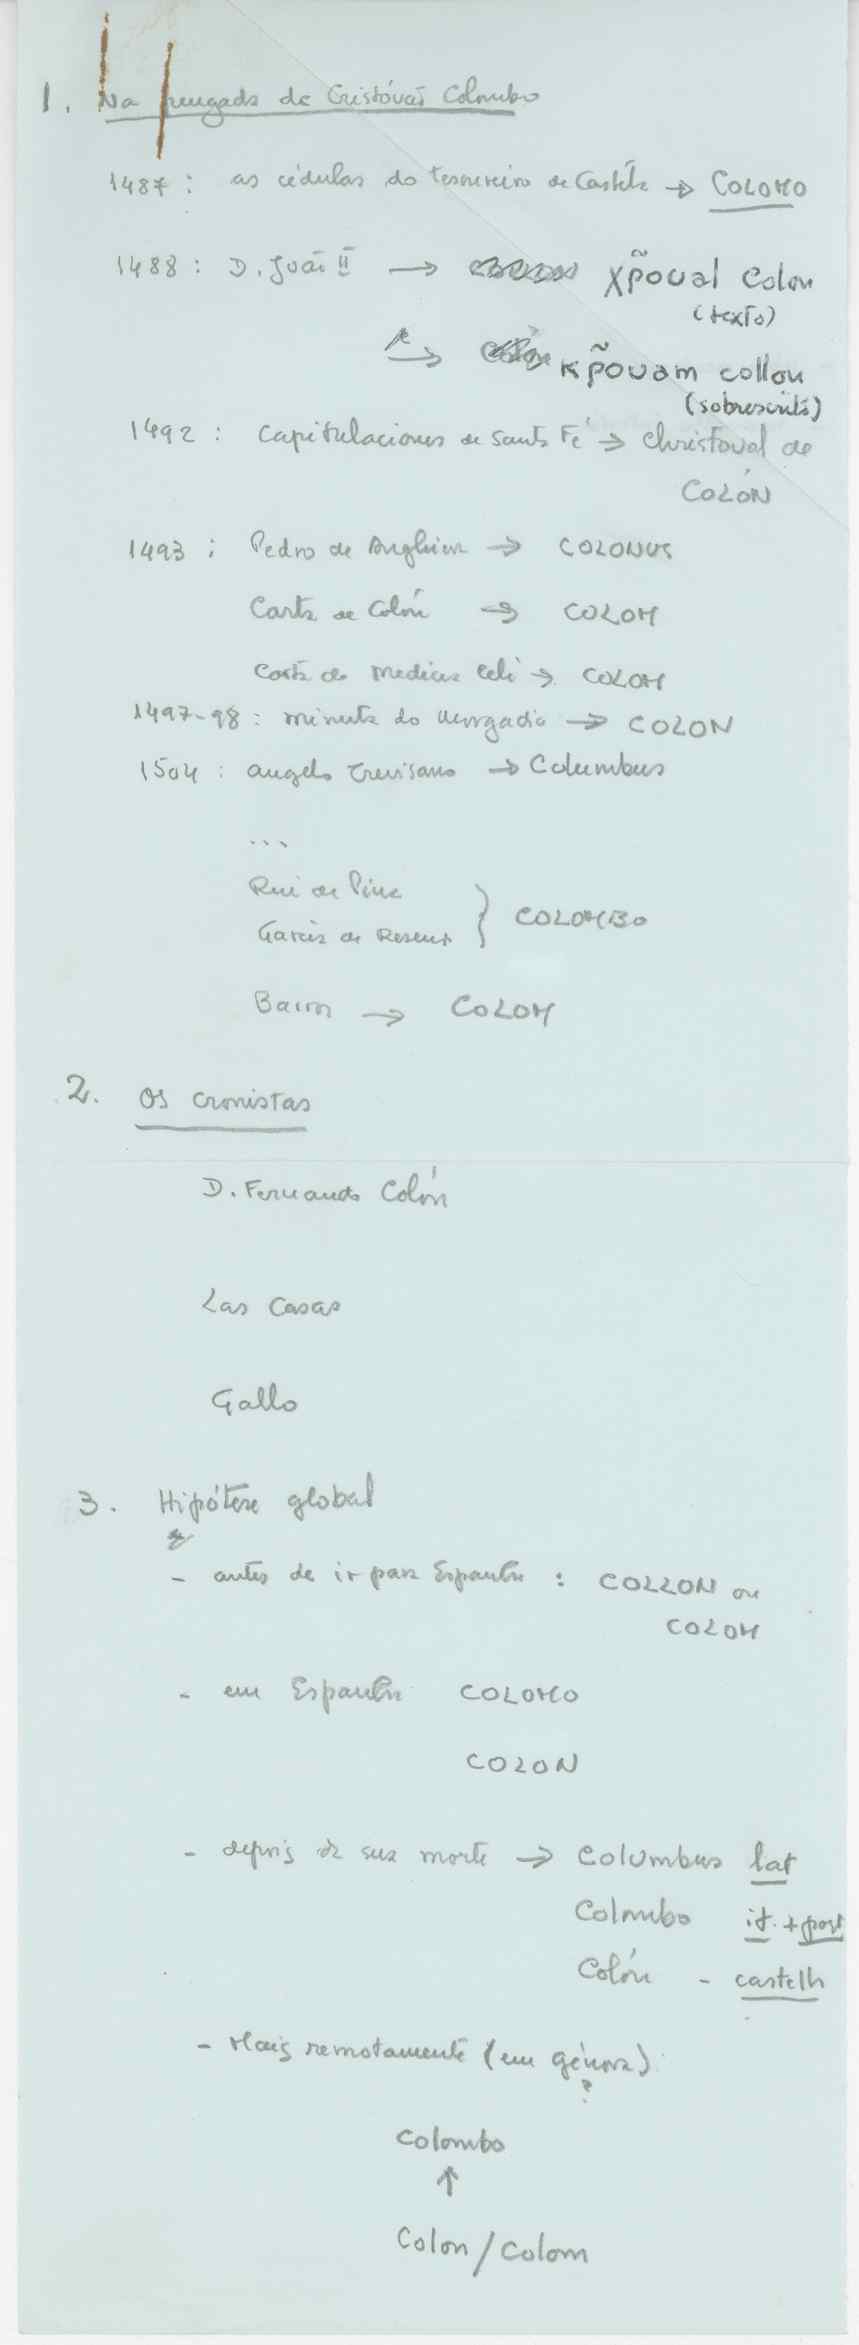 1. Na peugada de Cristóvão Colombo
1487: as cédulas do tesoureiro de Castela → COLOMO
1488: D. João II → χp̃oual Colon
(texto)
→ κp̃ouam collon
(sobrescrito)
1492: Capitulaciones de Santa Fé → Christoval de
COLÓN
1493: Pedro de Anghiera → COLONUS
Carta de Colón → COLOM
Carta de Medina Celi → COLOM
1497-98: minuta do morgadio → COLON
1504: Angelo Trevisano → Columbus
...
Rui de Pina
Garcia de Resende } COLOMBO
Barros → COLOM
2. Os cronistas
D. Fernando Colón
Las Casas
Gallo
3. Hipótese global
- antes de ir para Espanha: COLLON ou
COLOM
- em Espanha COLOMO
COLON
- depois da sua morte → Columbus lat
Colombo it. + port
Colón - castelh
- Mais remotamente (em génova)
?
Colombo
↑
Colon/Colom